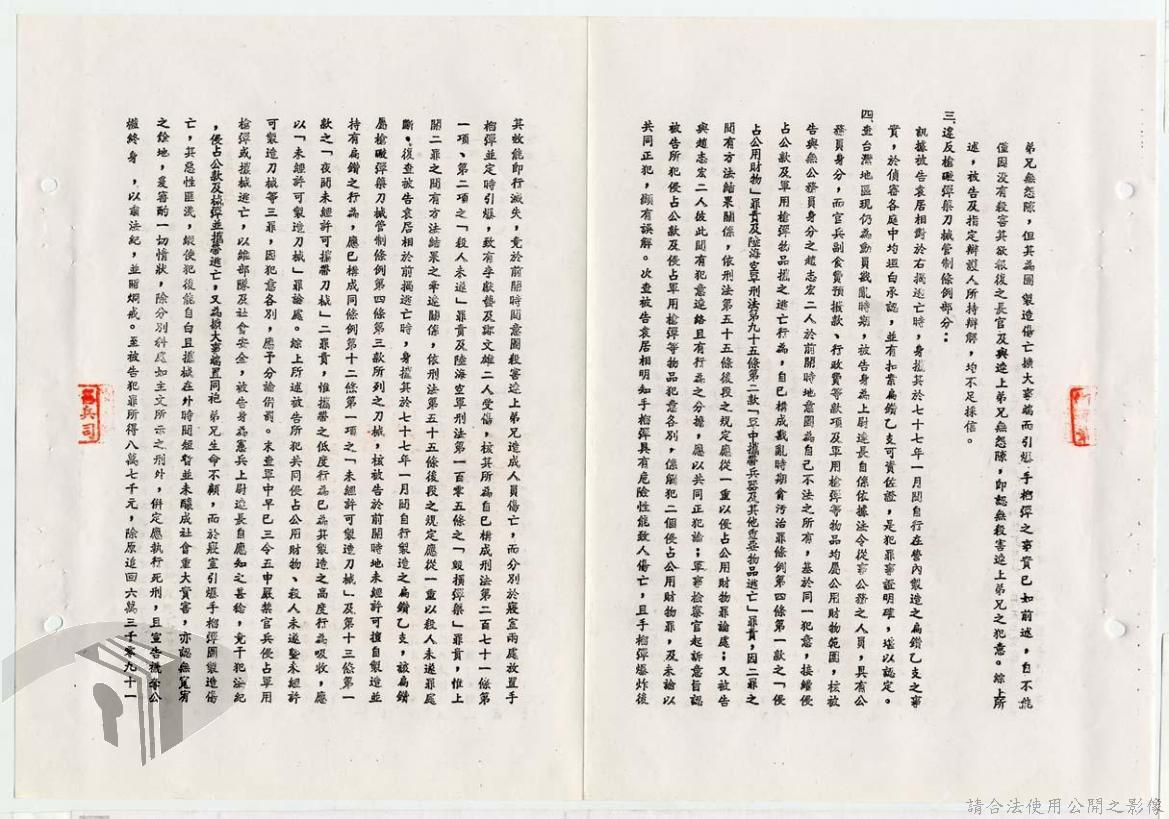 弟兄無怨隙，但其為圖製造傷亡擴大事端而引爆手榴彈之事實已如前述，自不能
僅因沒有殺害其欲報復之長官及與連上弟兄無怨隙，即認無殺害連上弟兄之犯意。綜上所
述，被告及指定辯護人所持辯解，均不足採信。
三、違反槍砲彈藥刀械管制條例部分：
訊據被告袁居相對於右揭逃亡時，身攜其於七十七年一月間自行在營內製造之扁鑽乙支之事
實，於偵審各庭中均坦白承認，並有扣案扁鑽乙支可資佐證，是犯罪事證明確，堪以認定。
四、查台灣地區現仍為動員戡亂時期，被告身為上尉連長自係依據法令從事公務之人員，具有公
務員身分，而官兵副食費預撥款、行政費等款項及軍用槍彈等物品均屬公用財物範圍，核被
告與無公務員身分之趙志宏二人於前開時地意圖為自己不法之所有，基於同一犯意，接續侵
占公款及軍用槍彈物品攜之逃亡行為，自已構成戡亂時期貪污治罪條例第四條第一款之「侵
占公用財物」罪責及陸海空軍刑法第九十五條第二款「豆中攜帶兵器及其他重要物品逃亡」罪責，因二罪之
間有方法結果關係，依刑法第五十五條後段之規定應從一重以侵占公用財物罪論處；又被告
與趙志宏二人彼此間有犯意連絡且有行為之分擔，應以共同正犯論；軍事檢察官起訴意旨認
被告所犯侵占公款及侵占軍用槍彈等物品犯意各別，係觸犯二個侵占公用財物罪，及未論以
共同正犯，顯有誤解。次查被告袁居相明知手榴彈具有危險性能致人傷亡，且手榴彈爆炸後
其效能即行滅失，竟於前開時間意圖殺害連上弟兄造成人員傷亡，而分別於寢室兩處放置手
榴彈並定時引爆，致有李猷藝及郭文雄二人受傷，核其所為自已構成刑法第二百七十一條第
一項、第二項之「殺人未遂」罪責及陸海空軍刑法第一百零五條之「毀損彈藥」罪責，惟上
開二罪之間有方法結果之牽連關係，依刑法第五十五條後段之規定應從一重以殺人未遂罪處
斷。復查被告袁居相於前揭逃亡時，身攜其於七十七年一月間自行製造之扁鑽乙支，該扁鑽
屬槍砲彈藥刀械管制條例第四條第三款所列之刀械，核被告於前開時地未經許可擅自製造並
持有扁鑽之行為，應已構成同條例第十二條第一項之「未經許可製造刀械」及第十三條第一
款之「夜間未經許可攜帶刀械」二罪責，惟攜帶之低度行為已為其製造之高度行為吸收，應
以「未經許可製造刀械」罪論處。綜上所述被告所犯共同侵占公用財物、殺人未遂暨未經許
可製造刀械等三罪，因犯意各別，應予分論併罰。末查軍中早已三令五申嚴禁官兵侵占軍用
槍彈或攜械逃亡，以維部隊及社會安全，被告身為憲兵上尉連長自應知之甚稔，竟干犯法紀
，侵占公款及槍彈並攜帶逃亡，又為擴大事端置同袍弟兄生命不顧，而於寢室引爆手榴彈圖製造傷
亡，其惡性匪淺，縱使犯後能自白且攜械在外時間經暫並未釀成社會重大實害，亦認無寬宥
之餘地，爰審酌一切情狀，除分別科處如主文所示之刑外，併定應執行死刑，且宣告褫奪公
權終身，以肅法紀，並昭炯戒。至被告犯罪所得八萬七千元，除原追回六萬三千零九十一
兵司
請合法使用公開之影像